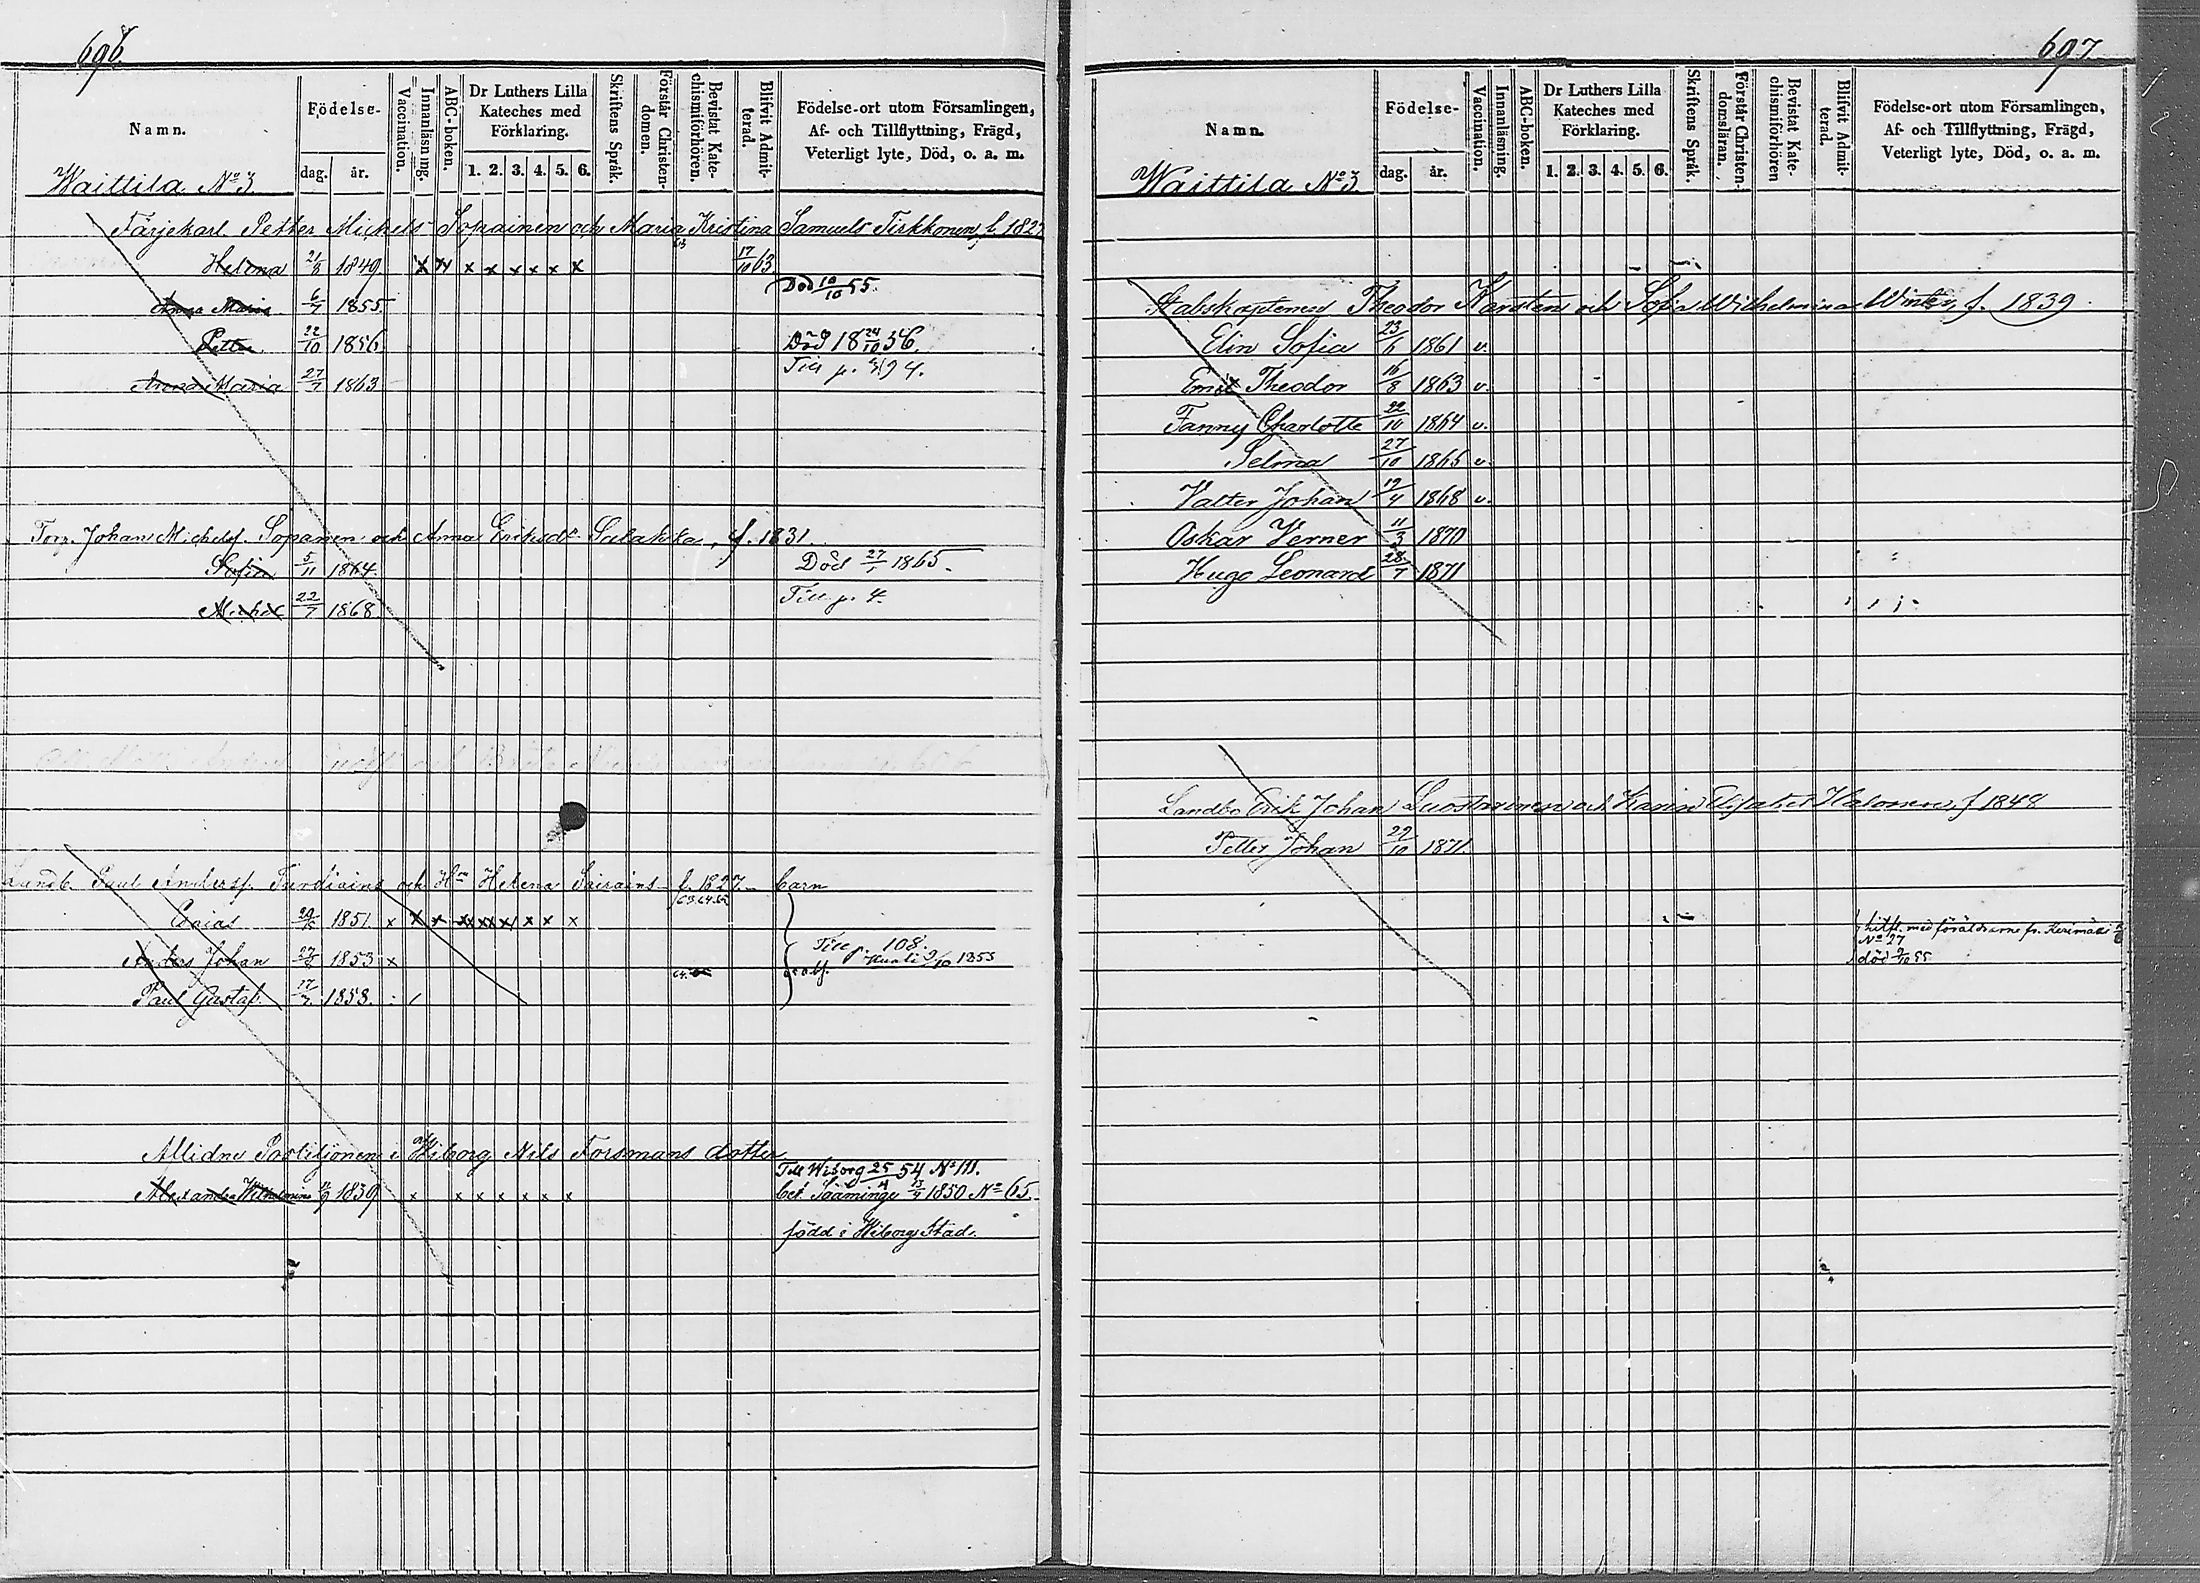 696.
Namn.
Födelse-
dag.
år.
Vaccination.
Innanläsning.
ABC-boken.
Dr Luthers Lilla
Kateches med
Förklaring.
1. 2. 3. 4. 5. 6.
Skriftens Språk.
Förstår Christen-
domen.
Bevistat Kate-
chismiförhören.
Blifvit Admit-
terad.
Födelse-ort utom Församlingen,
Af- och Tillflyttning, Frägd,
Veterligt lyte, Död, o. a. m.
Waittila No 3
Färjekarl Petter Michels Sopainen och Maria Kristina Samuels Tirkkonen, f. 182
Helena 21/8 1849 x x x x x x x x 17/10 63.
Anna Maria 6/7 1855 Död 10/10 55.
Petter 22/10 1856 Död 18 24/10 56.
Anna Maria 27/7 1863 Till p. 4.
Torp. Johan Michelss. Sopanen och Anna Eriksdr Sulakka, f. 1831.
Sofia 5/11 1864 Död 27/1 1865.
Michel 22/7 1868 Till p. 4.
Landb. Paul Anderss. Turdiain och Hu Helena Sairain f. 1827 barn
63.64.65
Esaias 1851 x x x x x x x x x
Anders Johan 1853 x Till p. 108.
Paul Gustaf 17/7 1858.
Aflidne Postiljonen i Wiborg Nils Forsmans dotter
Till Wiborg 25/4 54 No 111.
Alexandra Wilhelmina 1839 x x x x x x x bet. Sääminge 1850 No 65.
född i Wiborgs Stad.
697.
Namn.
Födelse-
dag.
år.
Vaccination.
Innanläsning.
ABC-boken.
Dr Luthers Lilla
Kateches med
Förklaring.
1. 2. 3. 4. 5. 6.
Skriftens Språk.
Förstår Christen-
domsläran.
Bevistat Kate-
chismiförhören
Blifvit Admit-
terad.
Födelse-ort utom Församlingen,
Af- och Tillflyttning, Frägd,
Veterligt lyte, Död, o. a. m.
Waittila No 3
Stabskaptenen Theodor Karsten och Sofia Wilhelmina Winter, f. 1839.
Elin Sofia 23/6 1861 v.
Emil Theodor 16/8 1863 v.
Fanny Charlotte 22/10 1864 v.
Selma 27/10 1865 v.
Valter Johan 19/4 1868 v.
Oskar Verner 11/3 1870
Hugo Leonard 28/7 1871
Landbo Erik Johan Luostarinen och Karin Elisabet Halonen, f 1848
Petter Johan 29/10 1871.
hitfl. med föräldrarne fr. Kerimäki
No 27
död 9/10 55